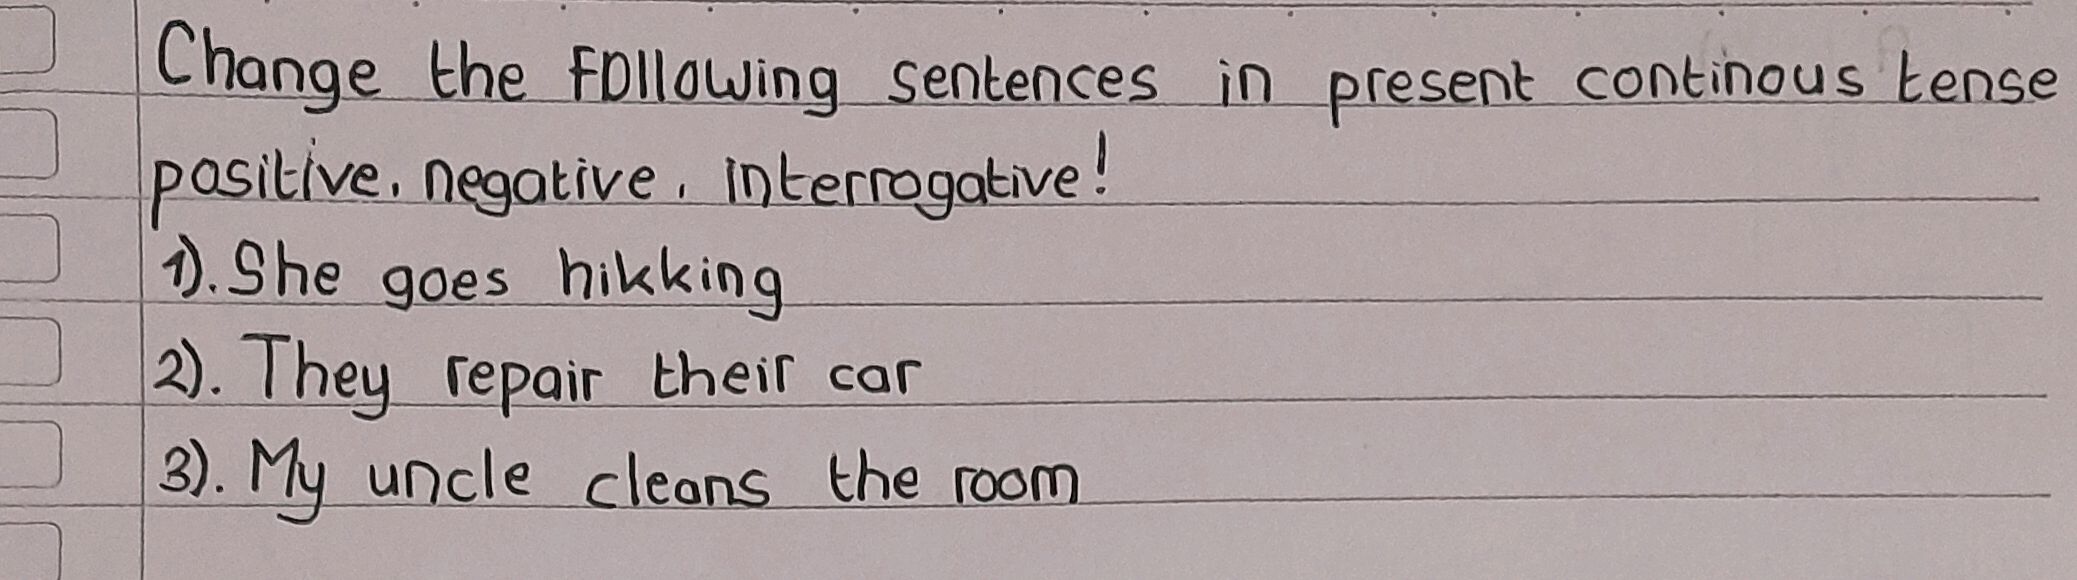 Change the Following sentences in present continous tense
positive, negative, interrogative!
1). She goes hikking
2). They repair their car
3). My uncle cleans the room